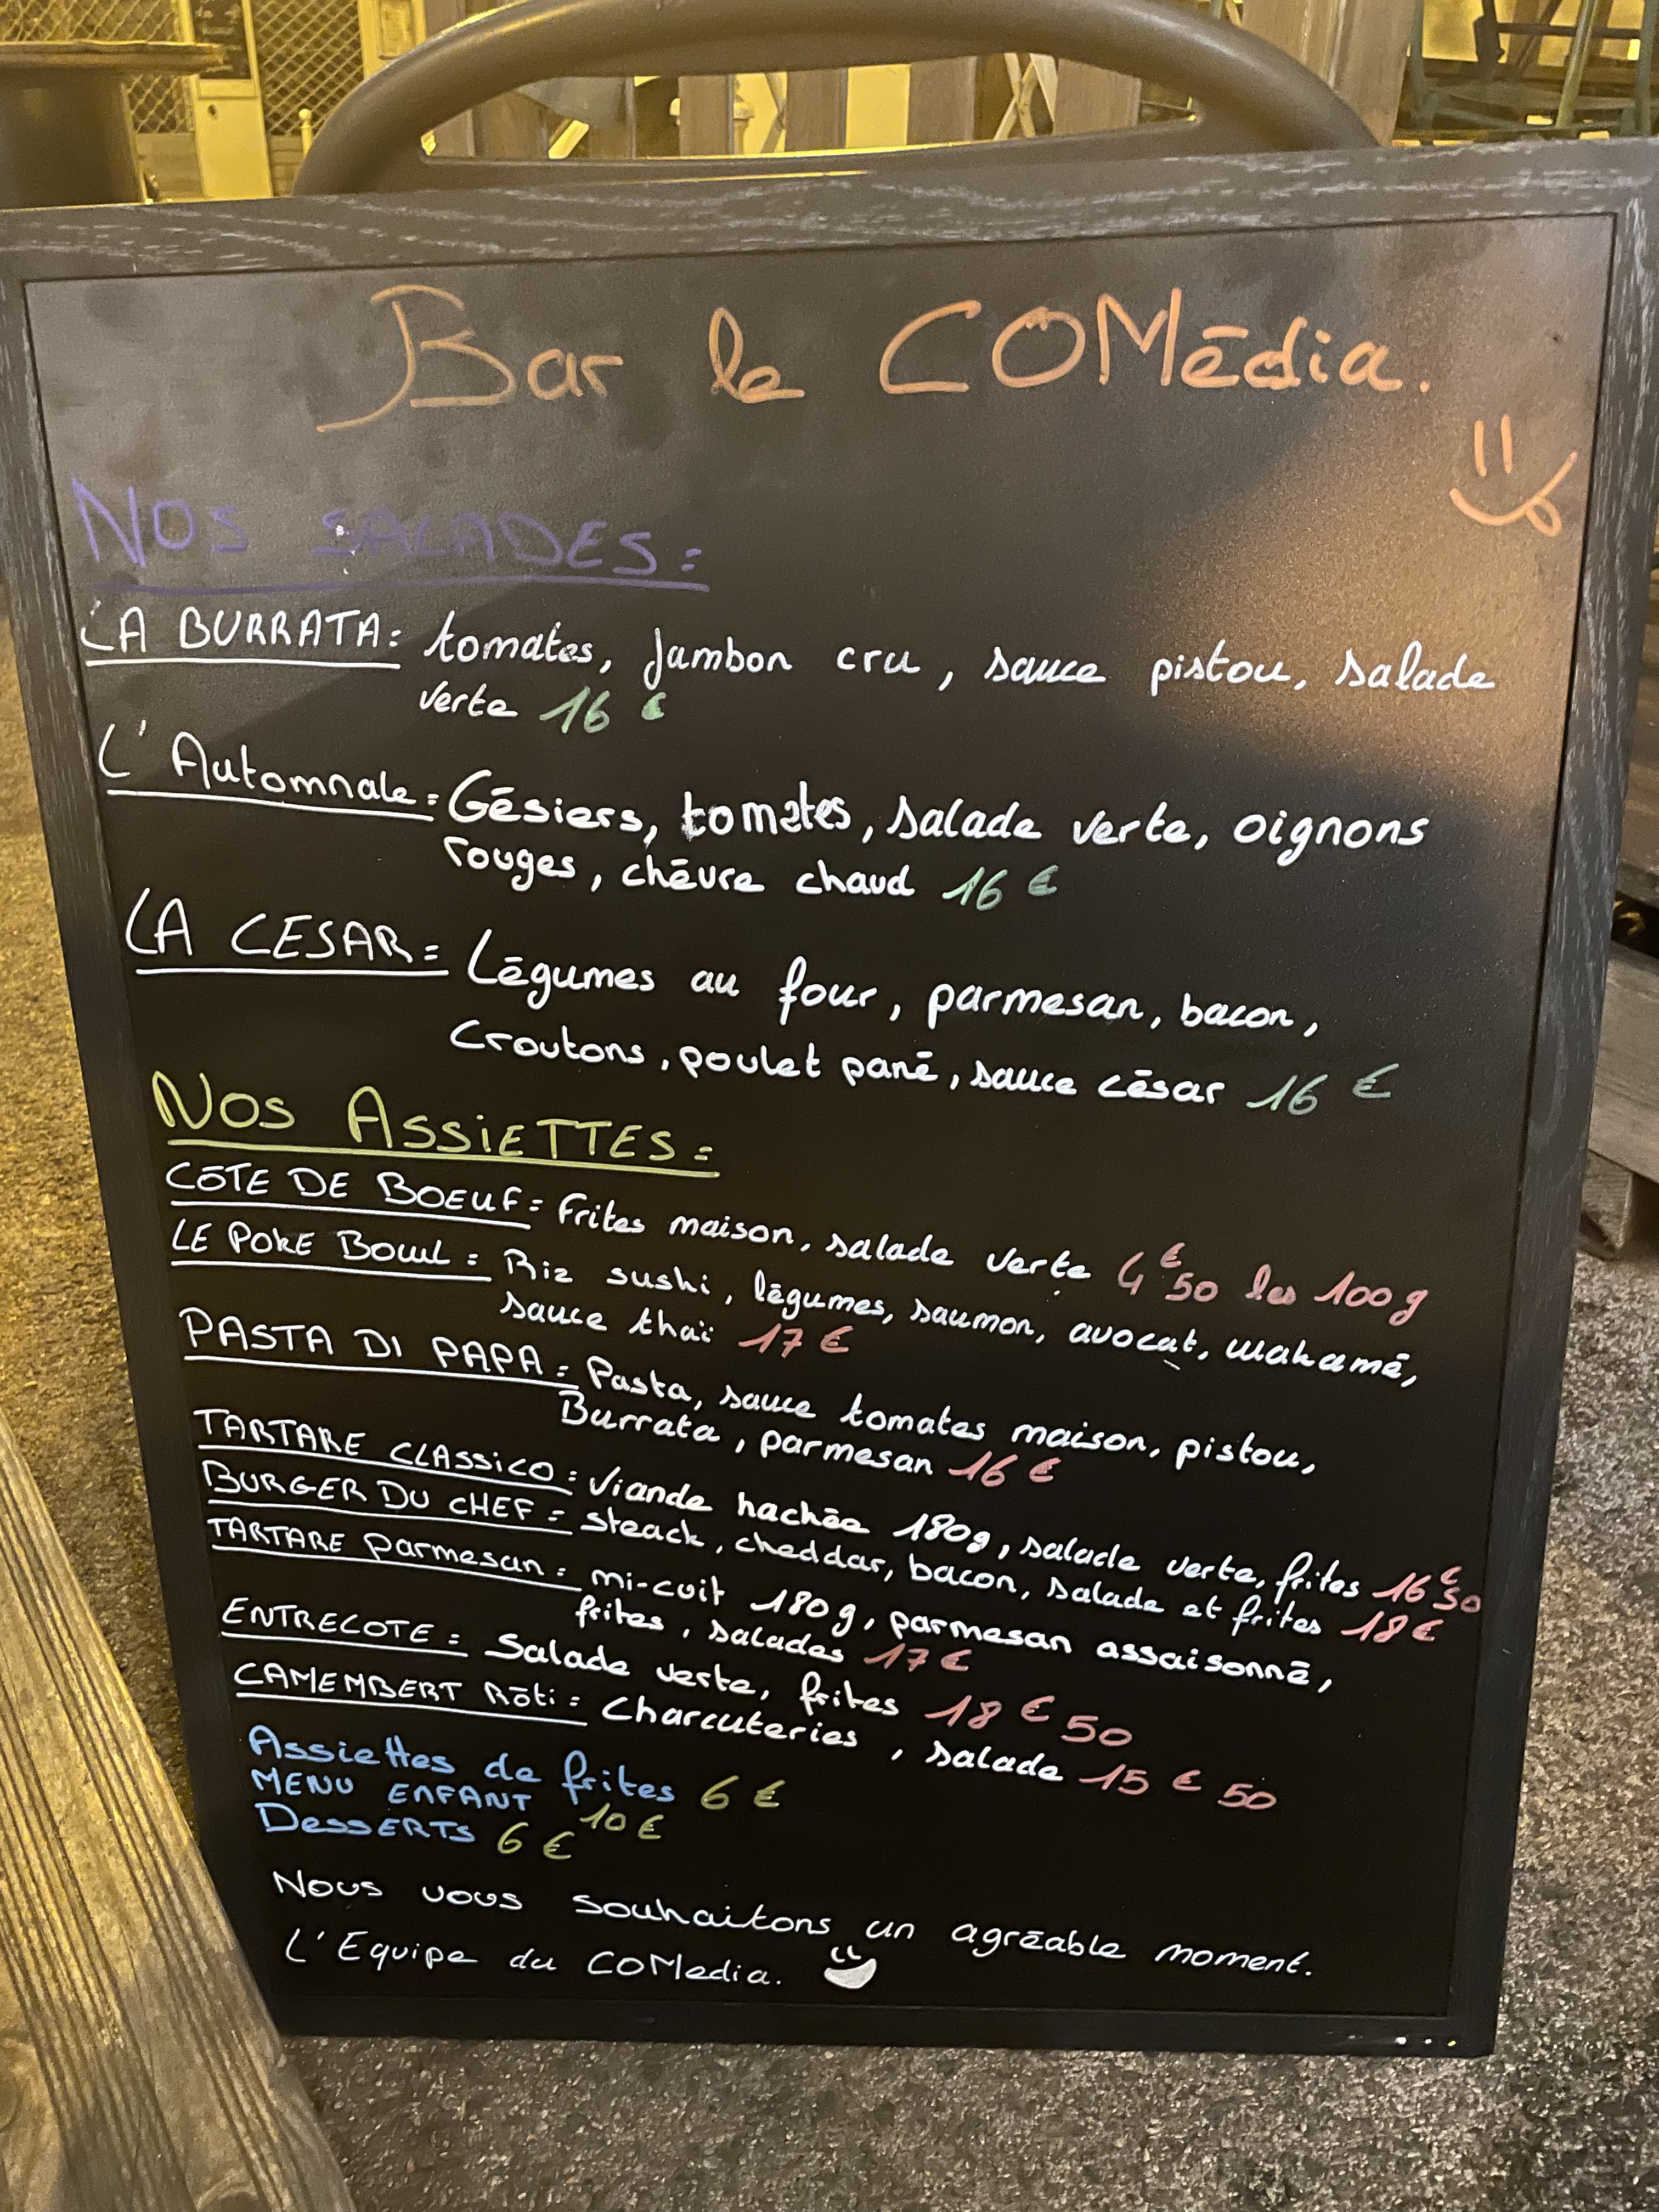 Bar le COMédia.
NOS SALADES:
LA BURRATA: tomates, jambon cru, sauce pistou, salade
verte 16 €
L'Automnale: Gésiers, tomates, salade verte, oignons
rouges, chèvre chaud 16 €
LA CESAR: Légumes au four, parmesan, bacon,
Croutons, poulet pané, sauce césar 16 €
NOS ASSiETTES:
CÔTE DE BOEUF: Frites maison, salade verte 4€50 les 100g
LE POKE BOWL: Riz sushi, légumes, saumon, avocat, wakamé,
sauce thaï 17 €
PASTA DI PAPA: Pasta, sauce tomates maison, pistou,
Burrata, parmesan 16 €
TARTARE CLASSICO: Viande hachée 180g, salade verte, frites 16€50
BURGER DU CHEF: steack, cheddar, bacon, salade et frites 18€
TARTARE Parmesan: mi-cuit 180g, parmesan assaisonné,
frites, salades 17€
ENTRECOTE: Salade verte, frites 18 € 50
CAMEMBERT Rôti: Charcuteries, salade 15 € 50
Assiettes de frites 6 €
MENU ENFANT 10€
DessERTS 6 €
Nous vous souhaitons un agréable moment.
L'Equipe du COMedia.